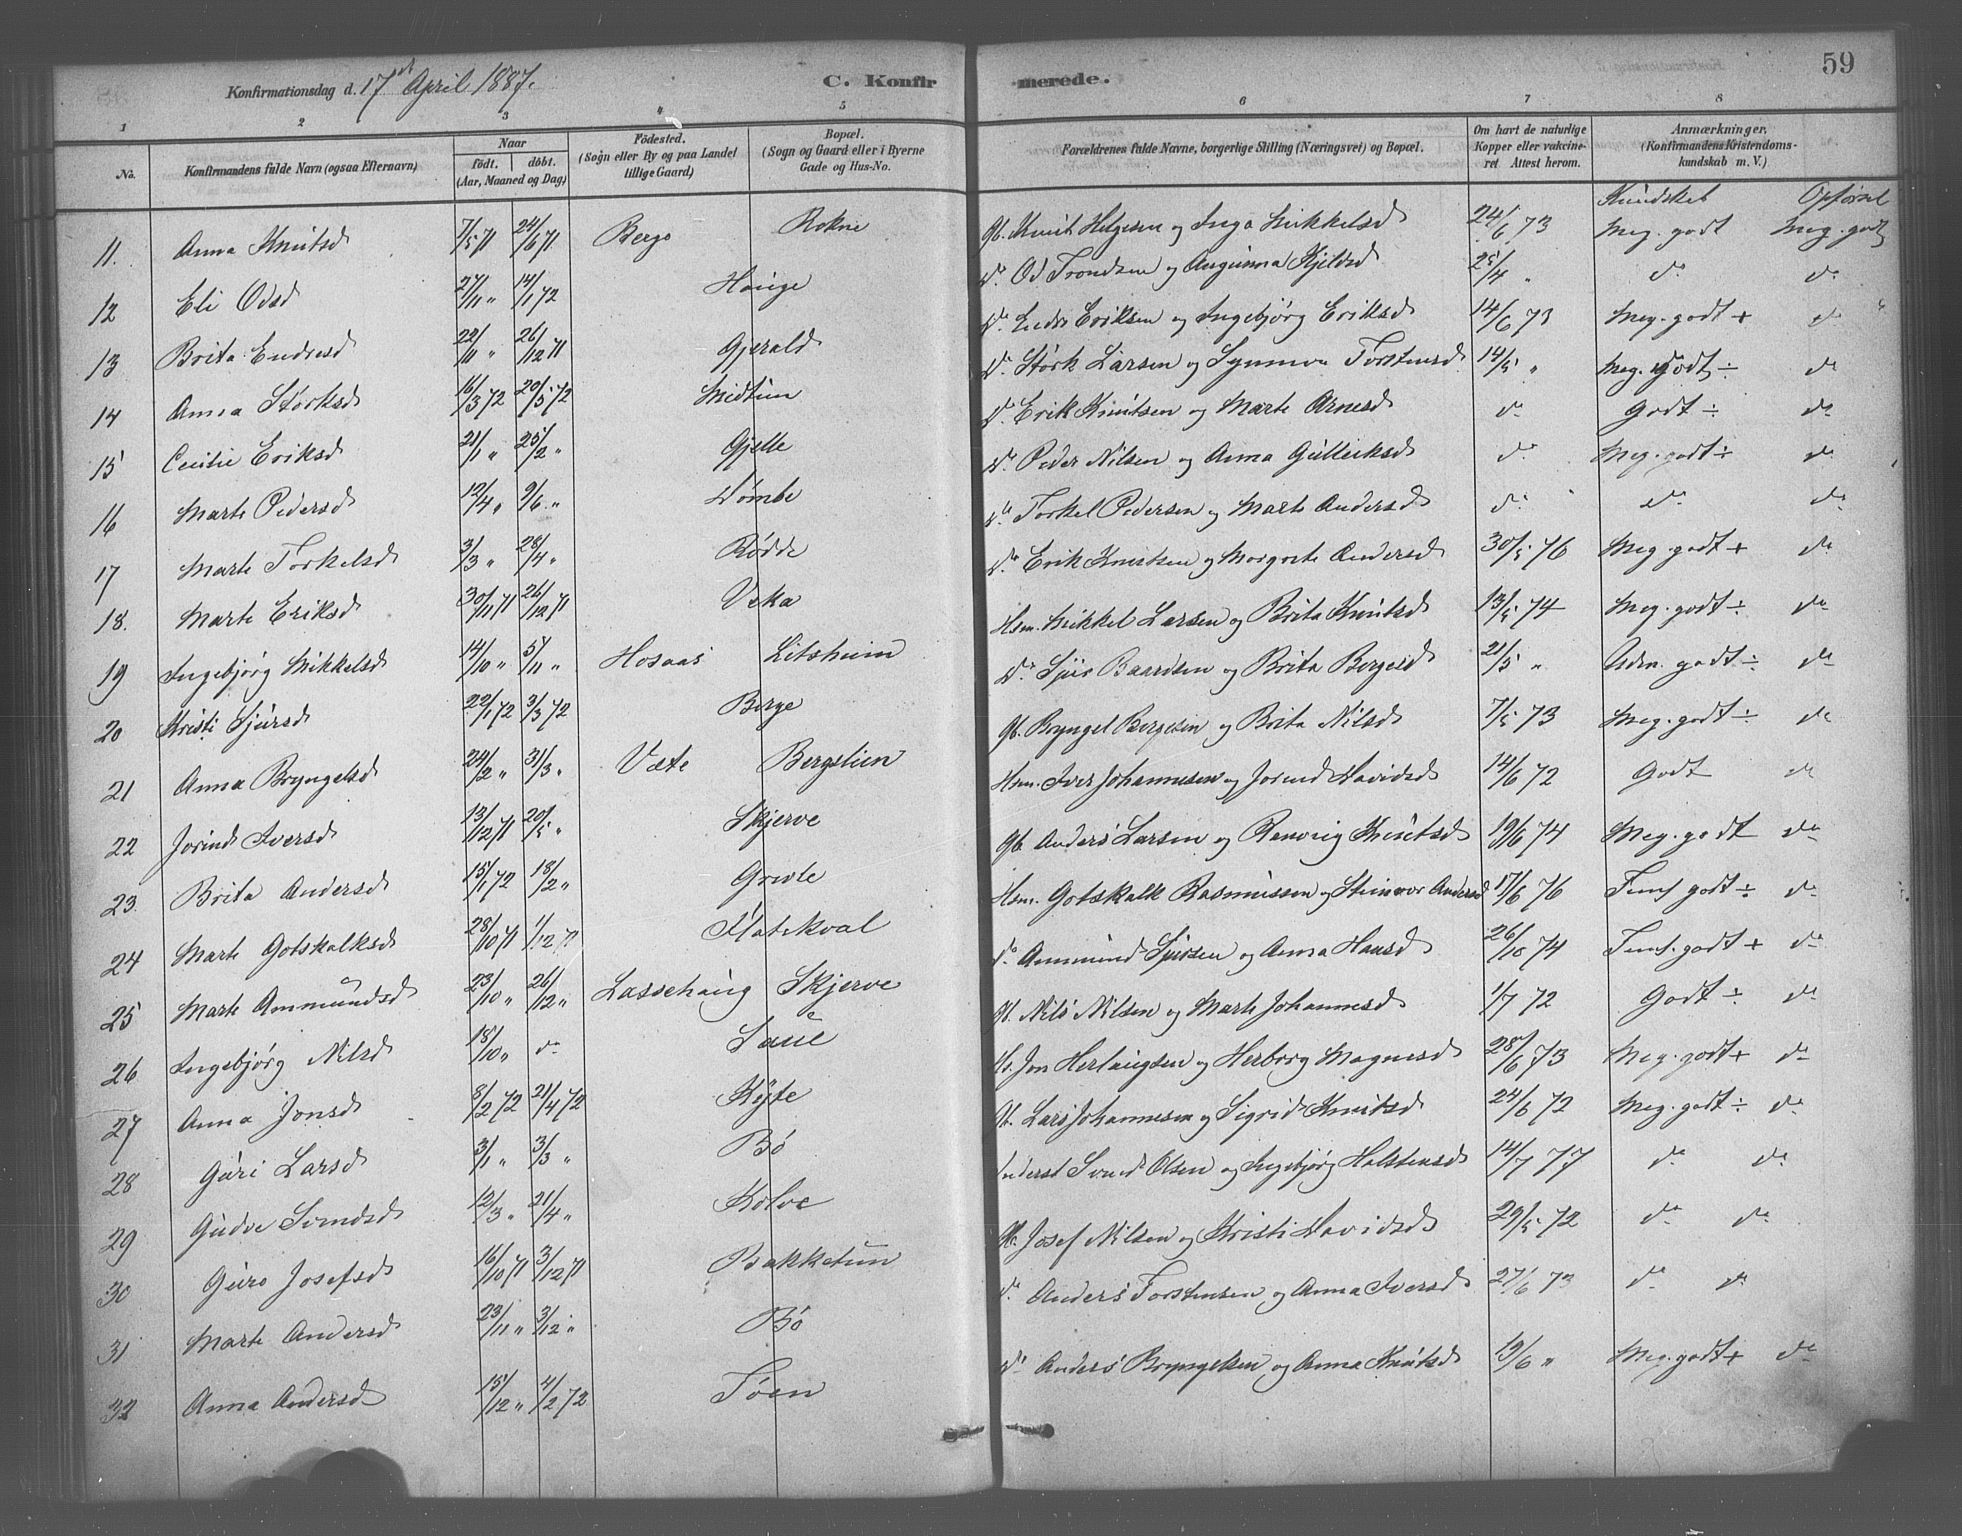 59
Konfirmationsdag d. 17de April 1887. C. Konfirmerede.
1 2 3 4 5 6 7 8
No. Konfirmandens fulde Navn (ogsaa Efternavn) Naar födt. döbt. (Aar, Maaned og Dag) Födested. (Sogn eller By og paa Landet tillige Gaard) Bopæl. (Sogn og Gaard eller i Byerne Gade og Hus-No. Forældrenes fulde Navne, borgerlige Stilling (Næringsvei) og Bopæl. Om havt de naturlige Kopper eller vakcineret Attest herom. Anmærkninger. (Konfirmandens Kristendomskundskab m. V.)
Kundskab Opførsel
11. Anna Knutsd 7/5 71 24/6 71 Bergo Rokne Gb. Knut Helgesen og Inga Mikkelsd 24/6 73 Meg. godt Meg. godt
12 Eli Odsd 27/11 " 14/1 72 Hauge do Od Trondsen og Angunna Kjelsd 25/4 " do do
13 Brita Endresd 22/11 " 26/12 71 Gjerald do Endre Eriksen og Ingebjørg Eriksd 14/6 73 Meg. godt + do
14 Anna Størksd 16/3 72 20/5 72 Midtun do Størk Larsen og Synnva Torstensd 14/5 " Meg. godt ÷ do
15 Cecilie Eriksd 21/1 " 25/2 " Gjelle do Erik Knutsen og Marte Arnesd do Godt ÷ do
16 Marte Pedersd 12/4 " 9/6 " Dømbe do Peder Nilsen og Anna Gulleiksd do Meg. godt ÷ do
17 Marte Torkelsd 3/3 " 28/4 " Rødde do Torkel Pedersen og Marte Andersd do do do
18. Marte Eriksd 30/11 71 26/12 71 Veka do Erik Knutsen og Margrete Andersd 30/5 76 Meg. godt + do
19 Ingebjørg Mikkelsd 14/10 " 5/11 " Hosaas Litsheim Hsm. Mikkel Larsen og Brita Knutsd 13/5 74 Meg. godt ÷ do
20 Kristi Sjursd 22/1 72 3/3 72 Berge do Sjur Baardsen og Brita Bergesd 21/5 " Udm. godt ÷ do
21 Anna Bryngelsd 24/2 " 31/3 " Væte Bergslien Gb. Bryngel Bergesen og Brita Nilsd 7/5 73 Meg. godt ÷ do
22 Jorind Iversd 13/12 71 20/5 " Skjerve Hsm. Iver Johannesen og Jorind Davidsd 14/6 72 Godt do
23 Brita Andersd 15/1 72 18/2 " Grove Gb. Anders Larsen og Ranveig Knutsd 19/6 74 Meg. godt do
24 Marte Gotskalksd 28/10 71 1/12 71 Flatekval Hsm. Gotskalk Rasmussen og Steinvor Andersd 17/6 76 Temf. godt ÷ do
25 Marte Ammundsd 23/10 " 26/12 " Lassehaug Skjerve do Ammund Sjursen og Anna Hansd 26/10 74 Temf. godt + do
26 Ingebjørg Nilsd 18/10 " do Saue Gb. Nils Nilsen og Marte Johannesd 1/7 72 Godt ÷ do
27 Anna Jonsd 8/2 72 21/4 72 Kyte Jon Herlaugsen og Herborg Magnesd 28/6 73 Meg. godt + do
28 Guri Larsd 3/1 " 3/3 " Bø Gb. Lars Johannesen og Sigrid Knutsd 24/6 72 Meg. godt ÷ do
29 Gudve Svendsd 12/3 " 21/4 " Kolve Inderst Svend Olsen og Ingebjørg Holstensd 14/7 77 do do
30 Guro Josefsd 16/10 71 3/12 71 Bakketun Gb. Josef Nilsen og Kristi Davidsd 29/5 72 do do
31 Marte Andersd 23/11 " 3/12 " Bø do Anders Torstensen og Anna Iversd 27/6 73 do do
32 Anna Andersd 15/12 " 4/2 72 Tøen do Anders Bryngelsen og Anna Knutsd 19/6 " Meg. godt + do